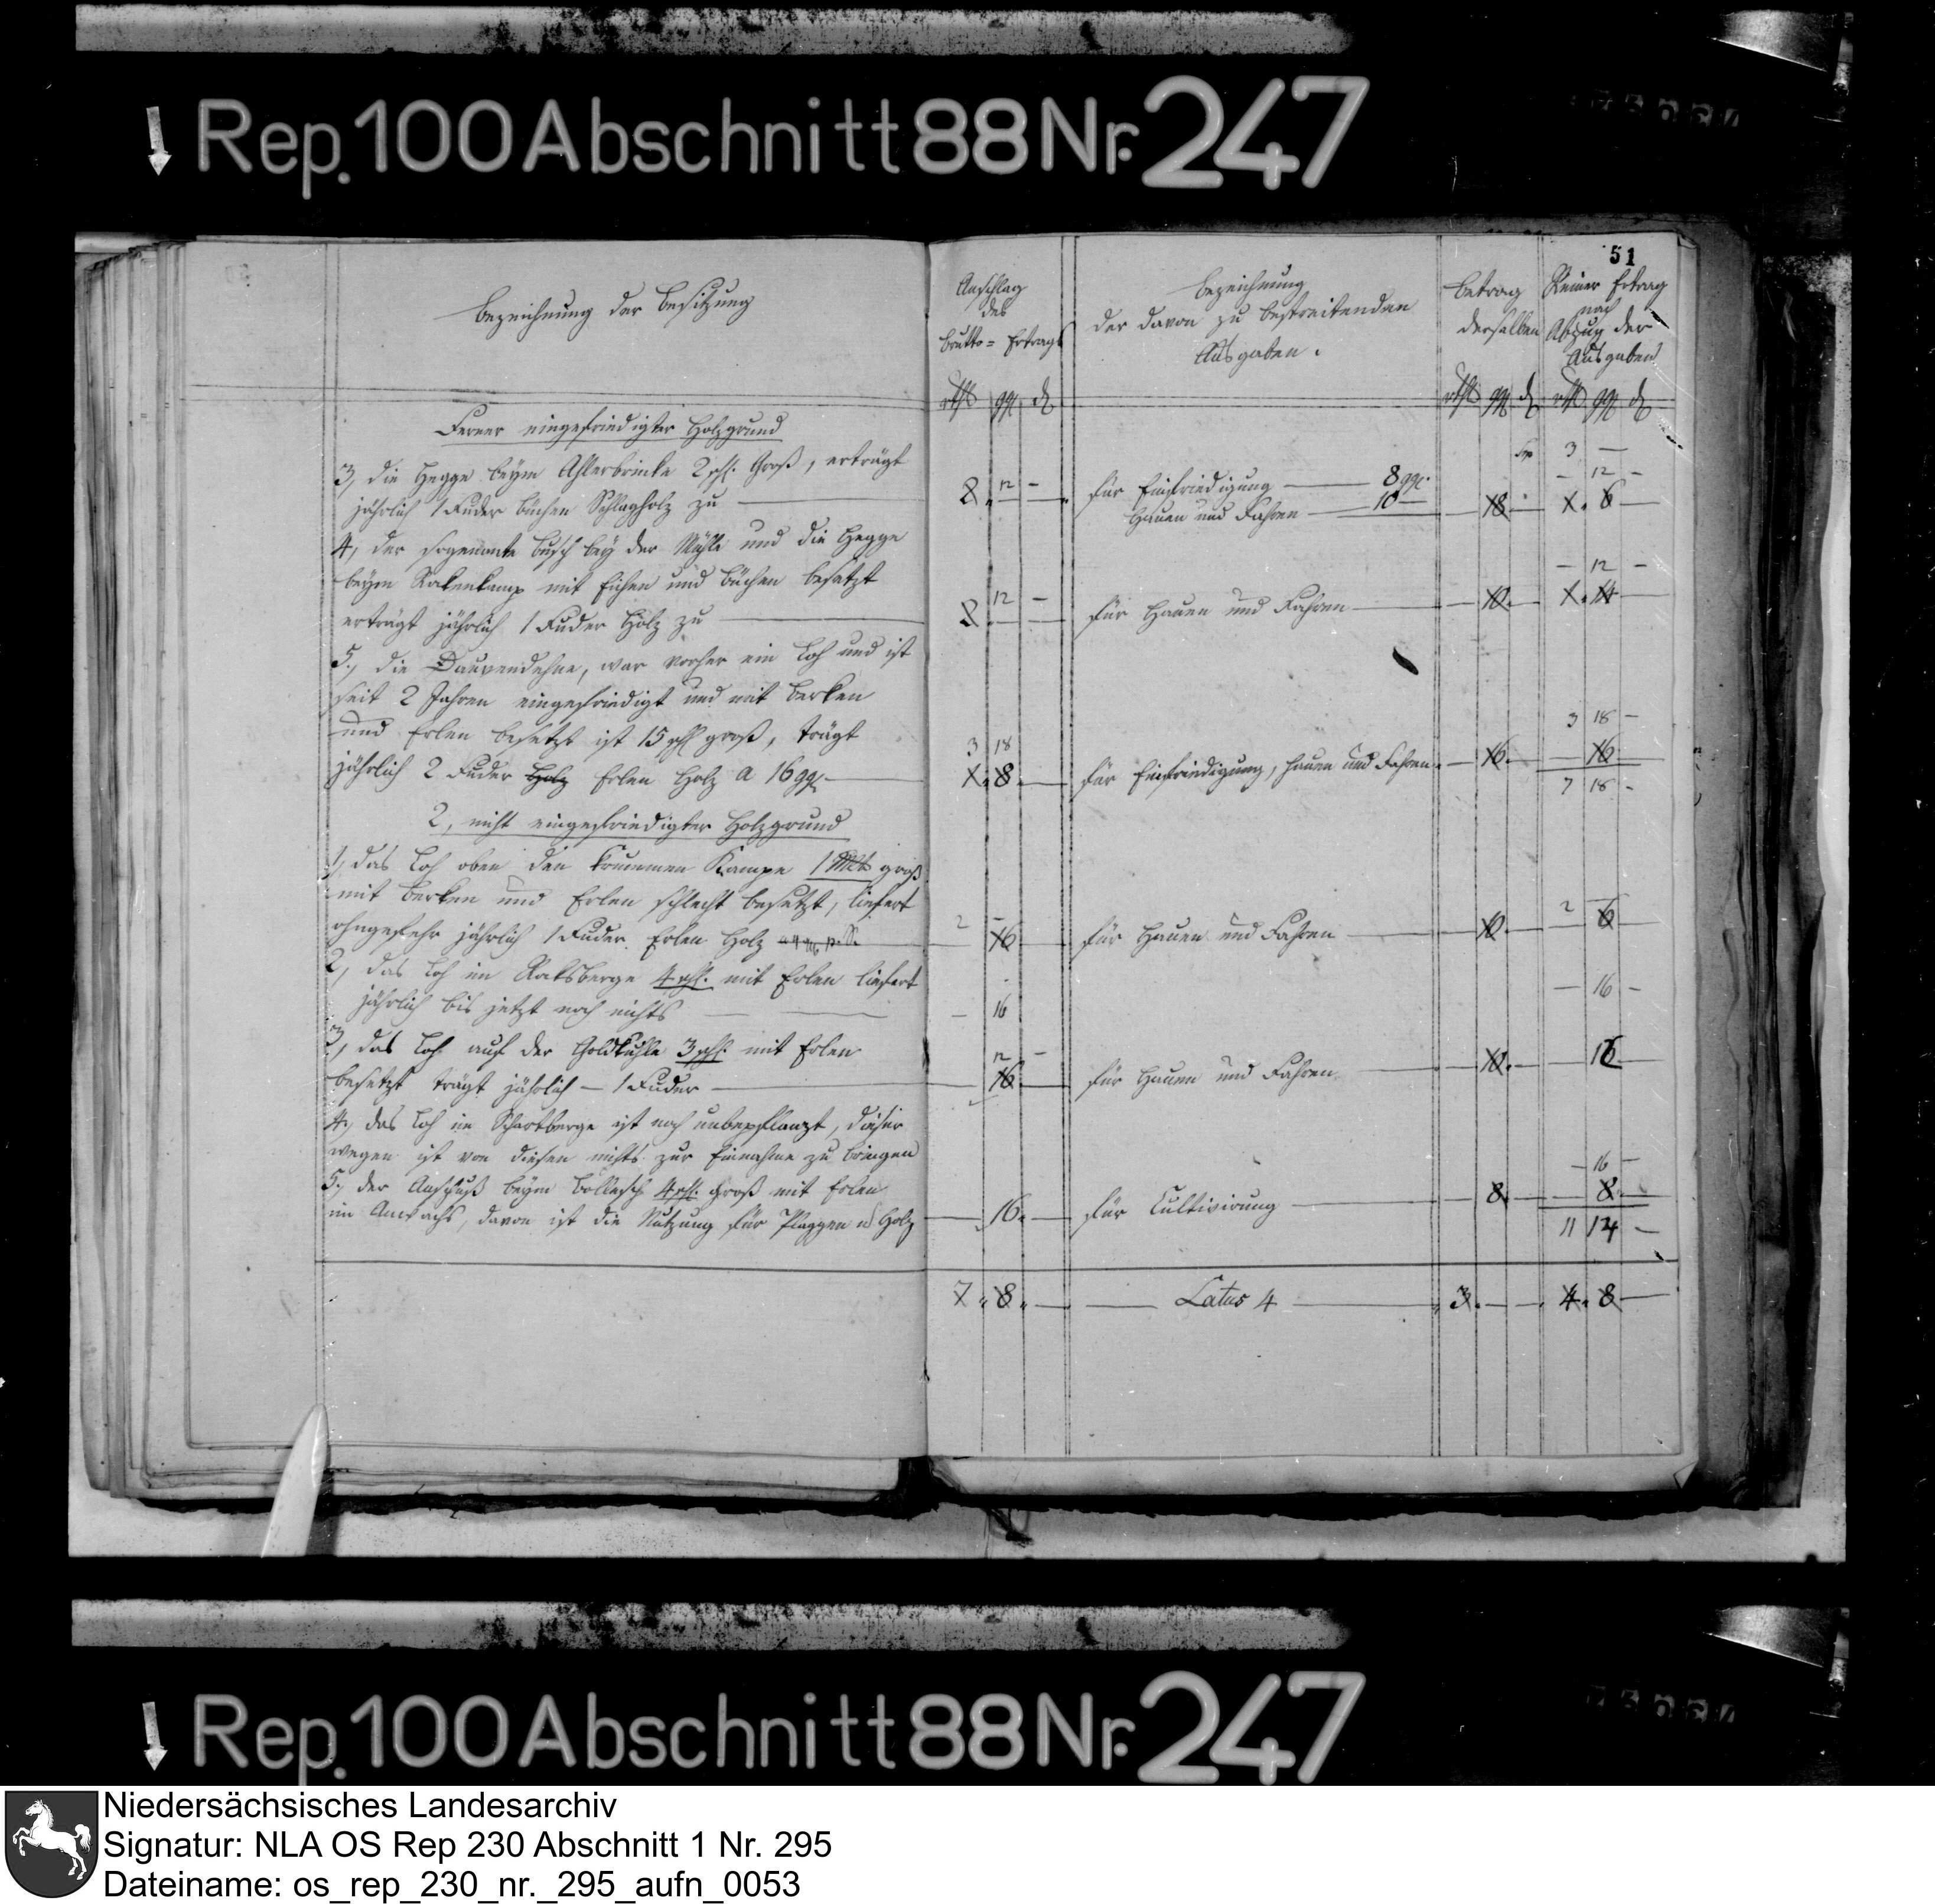 Rep. 100 Abschnitt 88 Nr. 247
51
Bezeichnung der Besitzung
Anschlag
des
Brutto- Ertrags
Bezeichnung
der davon zu bestreitenden
Ausgaben.
Betrag
derselben
Reiner Ertrag
nach
Abzug der
Ausgaben
Ferner eingefriedigter Holzgrund
3, die Hegge beym Ahlerbrinke 2 schl. Groß, erträgt
jährlich 1 Fuder büchen Schlagholz zu
2 12 -
für Einfriedigung 8 ggl.
Hauen und Fahren 10
18
3 -
- 12 -
1. 6
4, der sogenante Busch bey der Mühle und die Hegge
beym Kakenkamp mit Eichen und Büchen besetzt
erträgt jährlich 1 Fuder Holz zu
2 12 -
für Hauen und Fahren
10.
- 12 -
1. 14
5., die Dauvendehne, war vorher ein Loh und ist
seit 2 Jahren eingefriedigt und mit Berken
und Erlen besetzt ist 15 schl groß, trägt
jährlich 2 Fuder Holz Erlen Holz a 16 ggl
3 18
1. 8.
für Einfriedigung, Hauen und Fahren.
16.
3 18 -
16
7 18 -
2, nicht eingefriedigter Holzgrund
1, das Loh oben den krummen Kampe 1 Mlt groß
mit Berken und Erlen schlecht besetzt, liefert
ohngefehr jährlich 1 Fuder Erlen Holz
2 -
16
für Hauen und Fahren
10.
2 -
6
2, das Loh im Raksberge 4 schl. mit Erlen liefert
jährlich bis jetzt noch nichts
- 16
- 16 -
3, das Loh auf der Goldkuhle 3 schl. mit Erlen
besetzt trägt jährlich - 1 Fuder
12 -
16
für Hauen und Fahren
10.
4, das Loh im Schartberge ist noch unbepflanzt, dieser
wegen ist von diesen nichts zur Einnahme zu bringen
5., der Anschuß beym Böllesch 4 schl. groß mit Erlen
im Anwachs, davon ist die Nutzung für Plaggen u Holz
16.
für Cultivirung
8.
- 16 -
8.
11 14 -
7. 8.
Latus 4
3.
4. 8
Rep. 100 Abschnitt 88 Nr. 247
Niedersächsisches Landesarchiv
Signatur: NLA OS Rep 230 Abschnitt 1 Nr. 295
Dateiname: os_rep_230_nr._295_aufn_0053